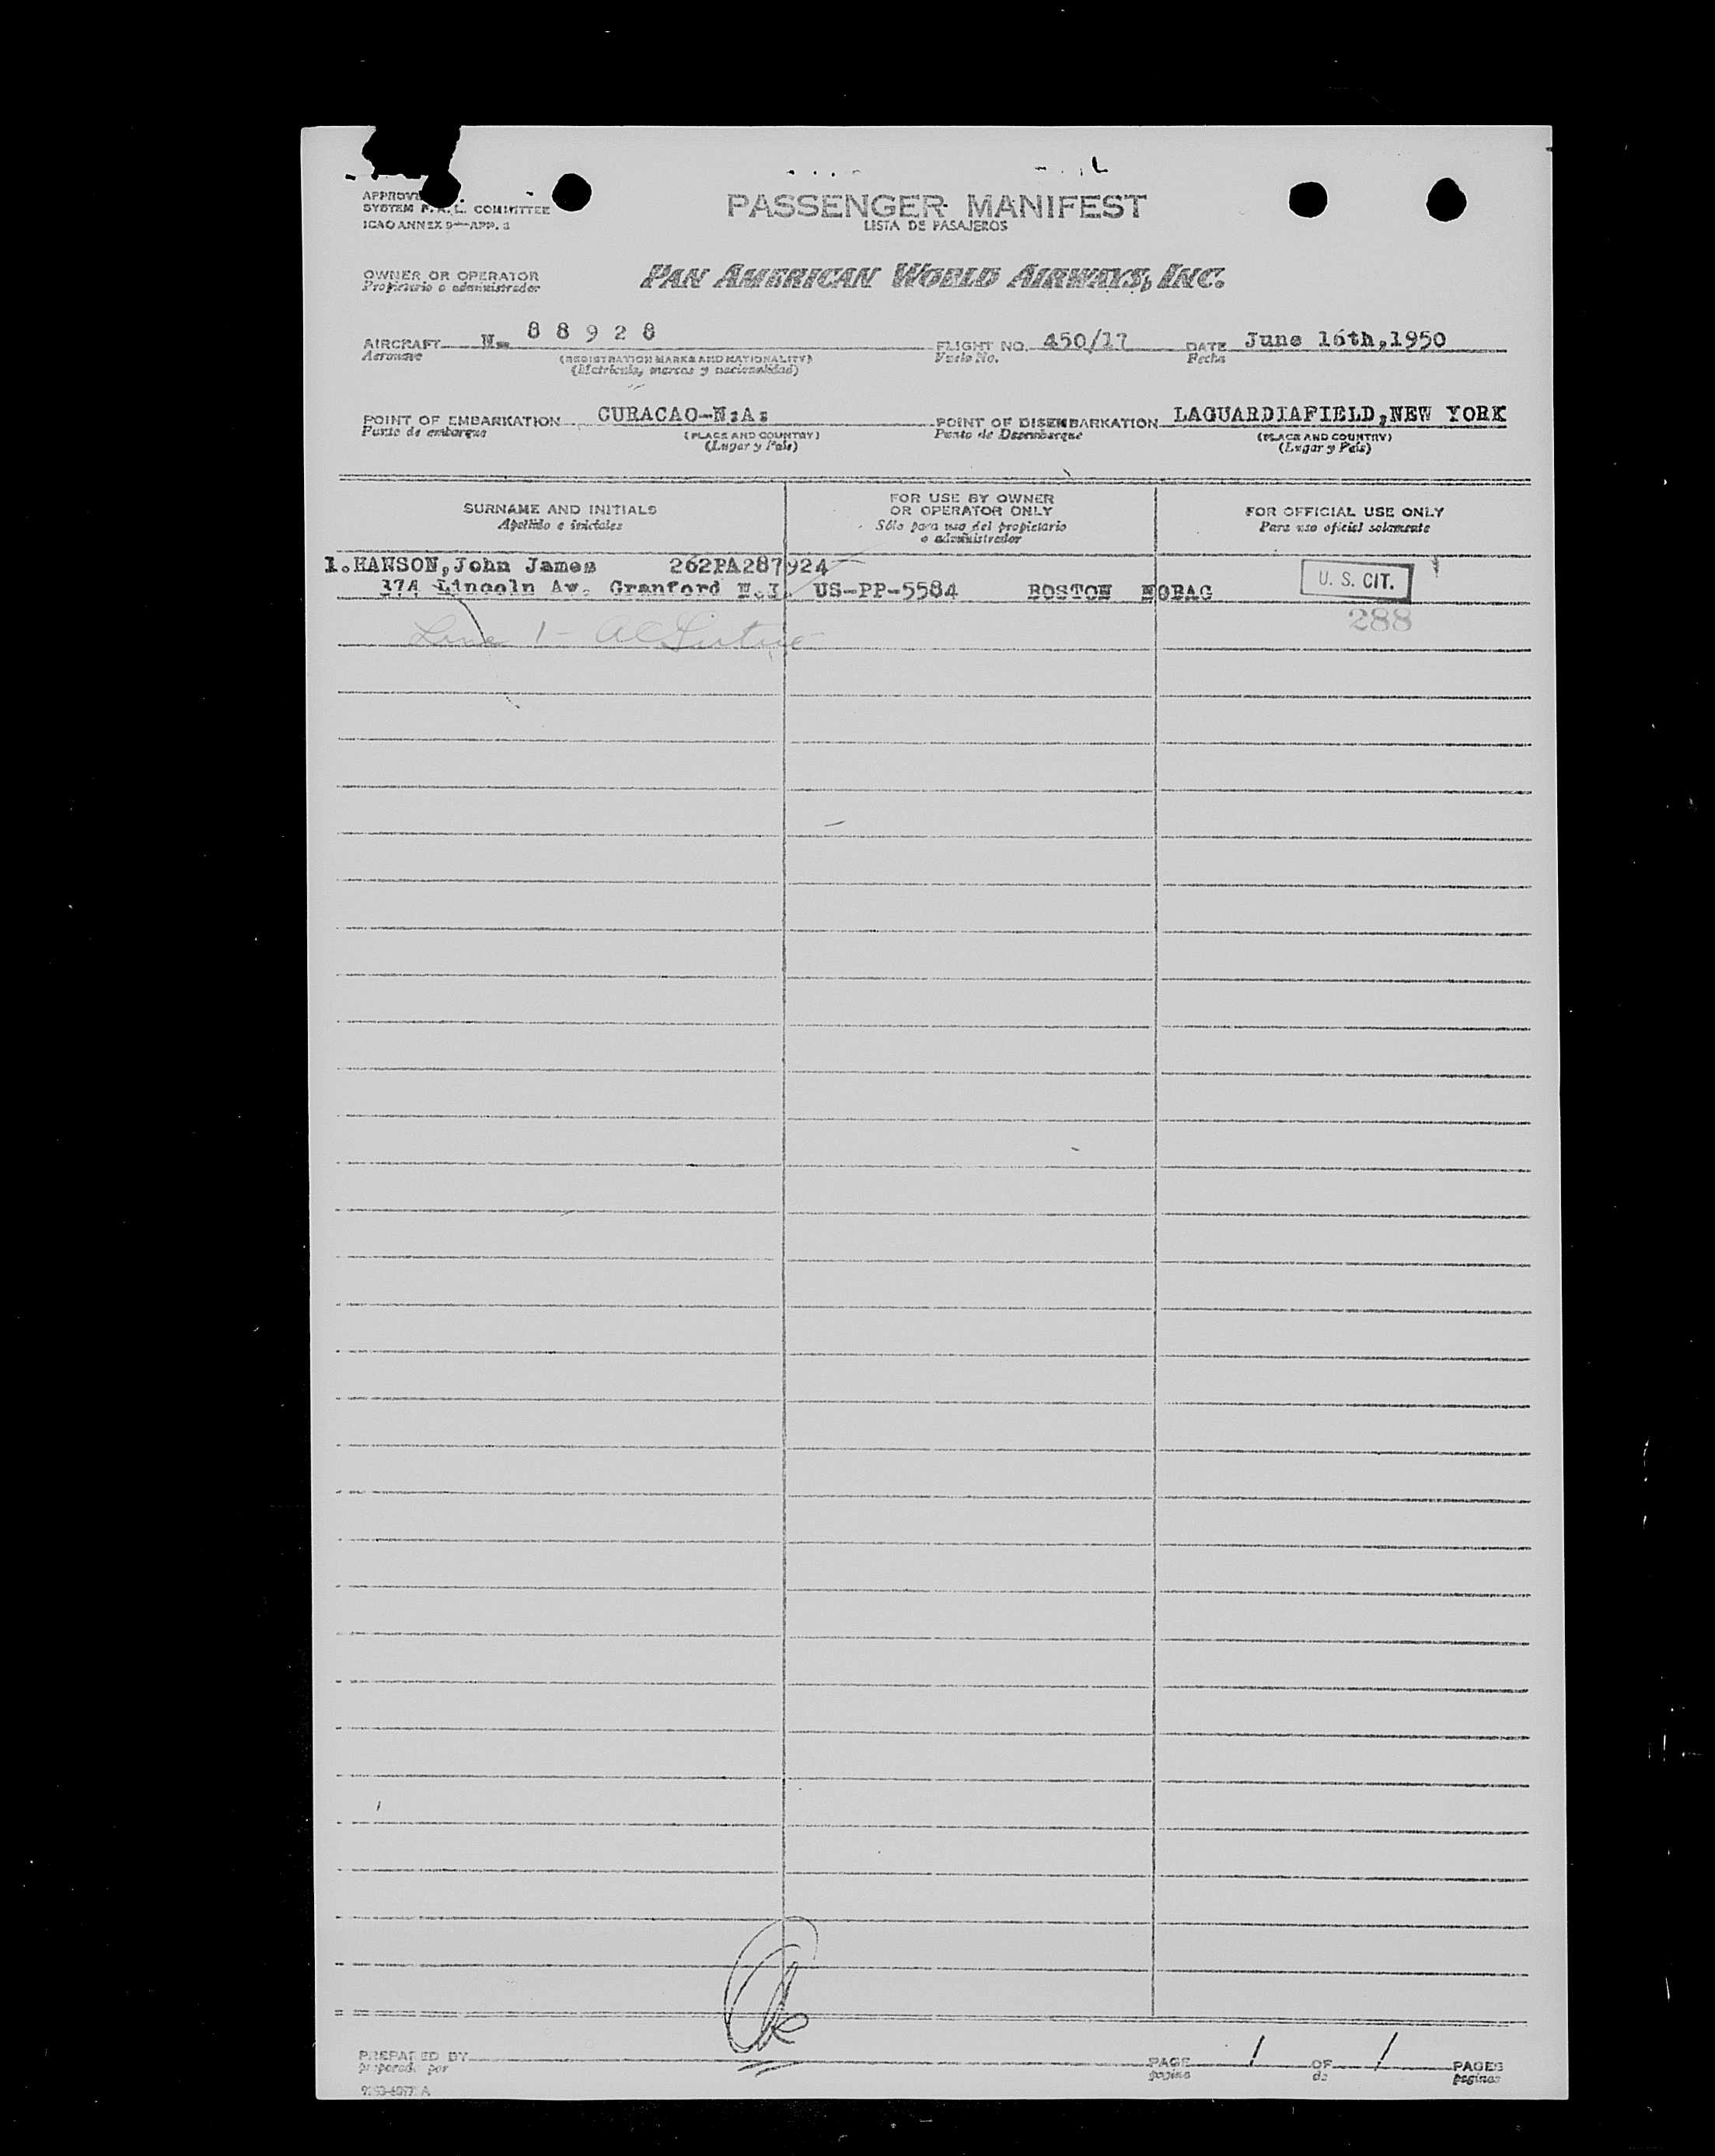 PASSENGER MANIFEST
LISTA DE PASAJEROS
APPROVE
SYSTEM F.A.L. COMMITTEE
ICAO ANNEX 9—APP. 3
OWNER OR OPERATOR
Propietario o administrador
PAN AMERICAN WORLD AIRWAYS, INC.
AIRCRAFT N- 8 8 9 2 8 FLIGHT NO. 450/17 DATE June 16th,1950
Aeronave (REGISTRATION MARKS AND NATIONALITY) Vuelo No. Fecha
(Matrícula, marcas y nacionalidad)
POINT OF EMBARKATION CURACAO-N:A: POINT OF DISEMBARKATION LAGUARDIAFIELD,NEW YORK
Punto de embarque (PLACE AND COUNTRY) Punto de Desembarque (PLACE AND COUNTRY)
(Lugar y País) (Lugar y País)
SURNAME AND INITIALS FOR USE BY OWNER OR OPERATOR ONLY FOR OFFICIAL USE ONLY
Apellido e iniciales Sólo para uso del propietario o administrador Para uso oficial solamente
1.HANSON,John James 262PA287924
374 Lincoln Av. Cranford N.J. US-PP-5584 BOSTON NOBAG U. S. CIT.
288
Line 1 -
PREPARED BY PAGE 1 OF 1 PAGES
preparado por página de páginas